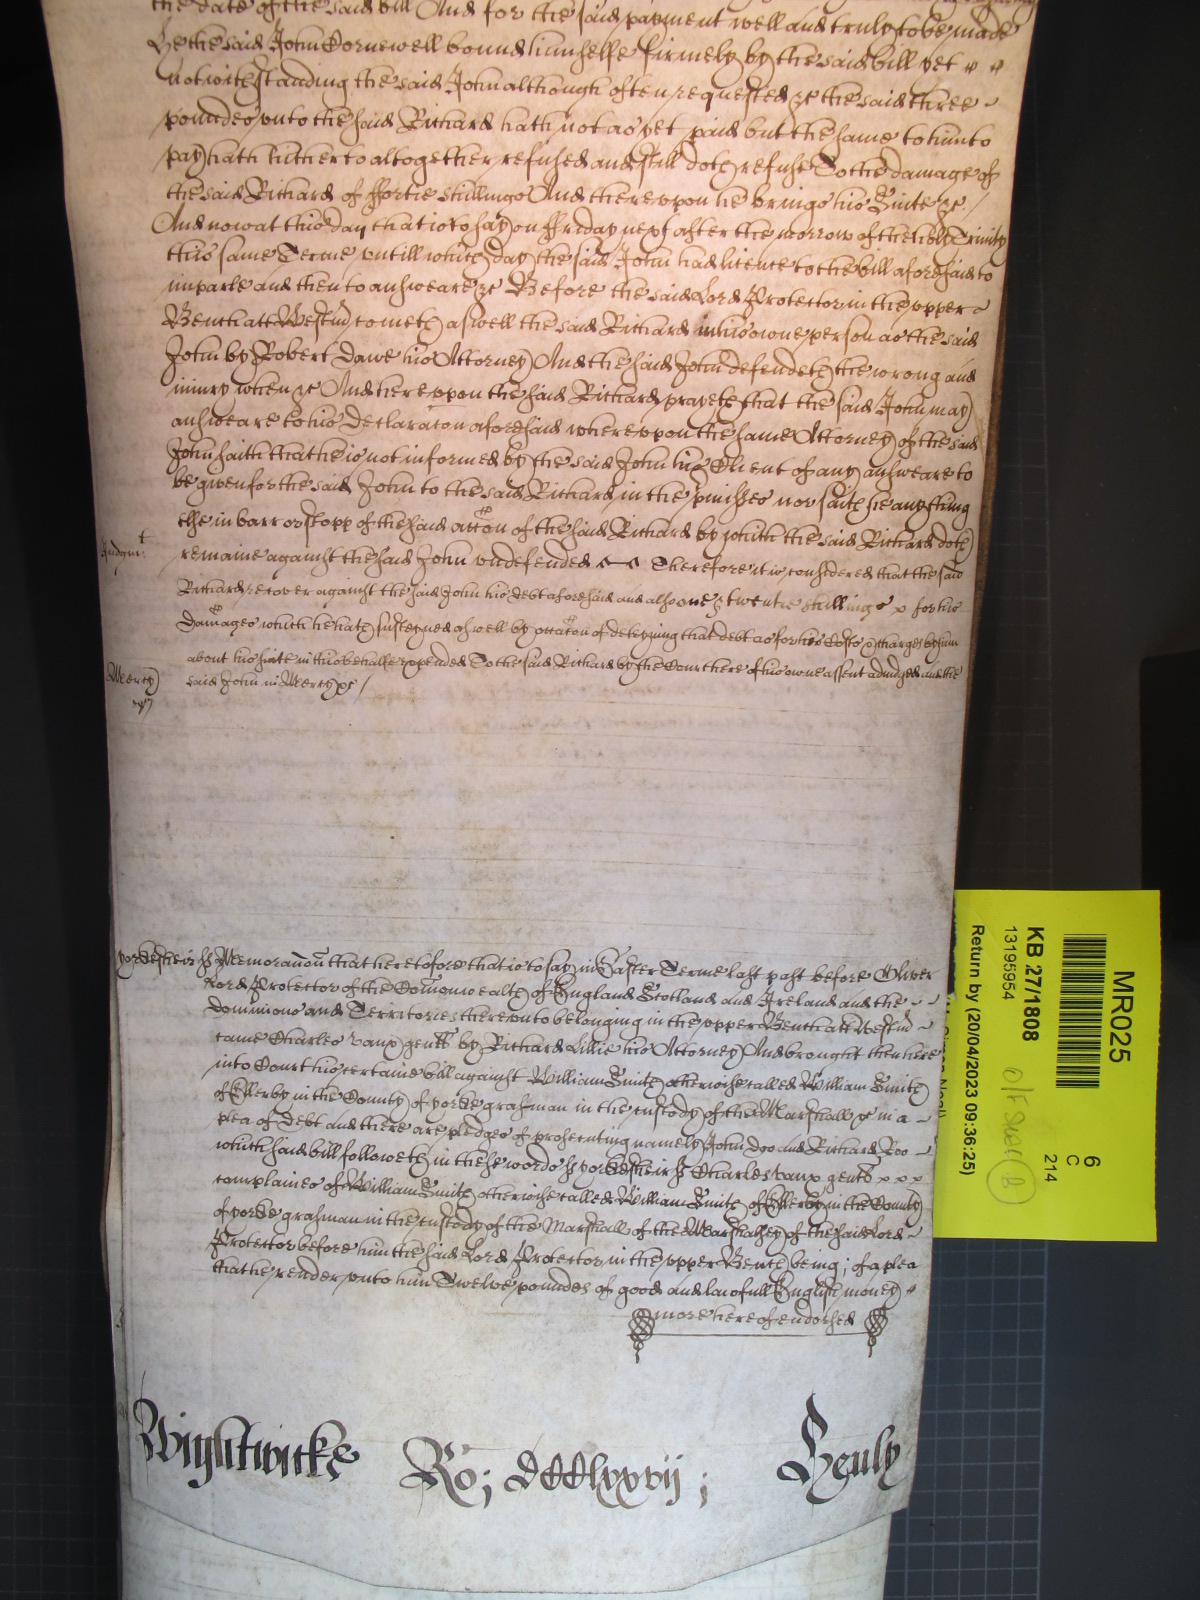 the date of the said bill And for the said payment well and truly to be made
He the said John Cornewell bound himselfe firmely by the said bill yet
notwithstanding the said John although often requested &c the said three
poundes unto the said Richard hath not as yet paid but the same to him to
pay hath hitherto altogether refused and still doth refuse To the damage of
the said Richard of ffortie shillings And thereupon he brings his Suite &c /
And now at this day that is to say on ffriday next after the morrow of the holy Trinity
this same Terme untill which day the said John had licence to the bill aforesaid to
imparle and then to answeare &c Before the said Lord Protector in the upper
Bench att Westm cometh aswell the said Richard in his owne person as the said
John by Robert Dawe his Attorney And the said John defendeth the wrong and
iniury when &c And hereupon the said Richard prayeth that the said John may
answeare to his Declaraton aforesaid whereupon the same Attorney of the said
John saith that he is not informed by the said John his Client of any answeare to
be given for the said John to the said Richard in the p'misses nor saith he anything
else in barr or stopp of the said accon of the said Richard by which the said Richard doth
Judgmt
remaine against the said John undefended Therefore it is considered that the said
Richard recover against the said John his debt aforesaid and also one & twentie shillings for his
Damages which he hath susteyned aswell by occacon of deteyning that debt as for his Costs & charges by him
about his suite in this behalfe expended To the said Richard by the Court here of his owne assent adiudged and the
Mercy
said John in Mercy &c /
Yorkesheir ss Memorandu that heretofore that is to say in Easter Terme last past before Oliver
Lord Protector of the Comonwealth of England Scotland and Ireland and the
Dominions and Territories thereunto belonging in the upper Bench att Westm
came Charles Vaux gent by Richard Lillie his Attorney And brought then here
into Court his certaine bill against William Smith otherwise called William Smith
of Ellerby in the County of yorke grasman in the custody of the Marshall &c in a
plea of Debt and there are pledges of prosecuting namely John Doo and Richard Roo
which said bill followeth in these words ss yorkesheir ss Charles Vaux gent
complaines of William Smith otherwise called William Smith of Ellerby in the County
of yorke grasman in the custody of the Marshall of the Marshalsey of the said Lord
Protector before him the said Lord Protector in the upper Bench being; of a plea
that he render unto him Twelve poundes of good and lawfull English money
more hereof endorsed
Wightwicke Ro; DCClxxvij; Henly
MR025
6
C
214
KB 27/1808
13195954
Return by (20/04/2023 09:36:25)